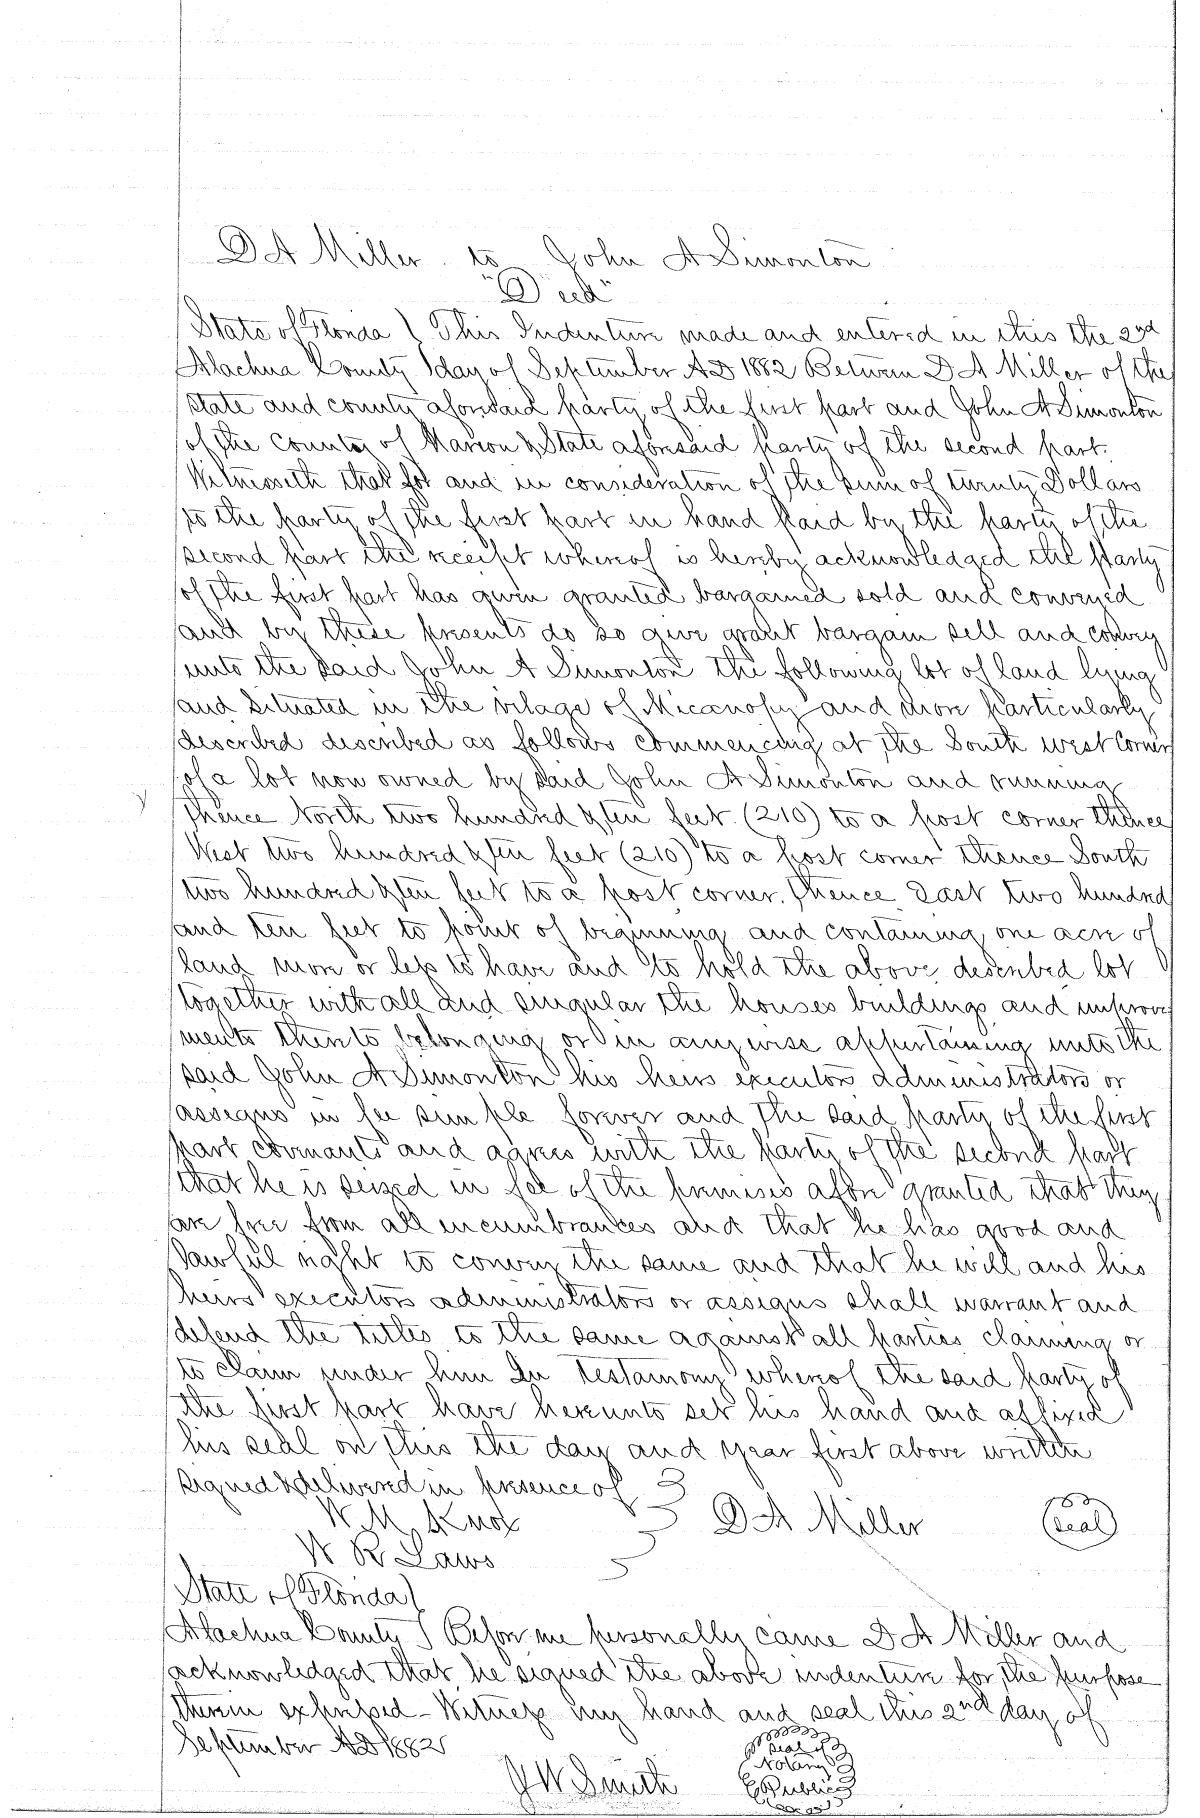 D A Miller to John A Simonton
"Deed"
State of Florida } This Indenture made and entered in this the 2nd
Alachua County } day of September AD 1882 Between D A Miller of the
state and county aforesaid party of the first part and John A Simonton
of the County of Marion & State aforesaid party of the second part.
Witnesseth that for and in consideration of the sum of twenty Dollars
to the party of the first part in hand paid by the party of the
second part the receipt whereof is hereby acknowledged the party
of the first part has given granted bargained sold and conveyed
and by these presents do so give grant bargain sell and convey
unto the said John A Simonton the following lot of land lying
and situated in the vilage of Micanopy and more particularly
described described as follows commencing at the South west Corner
of a lot now owned by said John A Simonton and running
thence North two hundred & ten feet (210) to a post corner thence
West two hundred & ten feet (210) to a post corner thence South
two hundred & ten feet to a post corner. thence East two hundred
and ten feet to point of beginning and containing one acre of
land more or less to have and to hold the above described lot
together with all and singular the houses buildings and improve
ments thereto belonging or in anywise appertaining unto the
said John A Simonton his heirs executors administrators or
assigns in fee simple forever and the said party of the first
part covenants and agrees with the party of the second part
that he is seized in fee of the premises afore granted that they
are free from all incumbrances and that he has good and
lawful right to convey the same and that he will and his
heirs executors administrators or assigns shall warrant and
defend the titles to the same against all parties claiming or
to claim under him In Testamony whereof the said party of
the first part have hereunto set his hand and affixed
his seal on this the day and year first above written
signed & delivered in presence of
W M Knox D A Miller (seal)
W R Laws
State of Florida }
Alachua County } Before me personally came D A Miller and
acknowledged that he signed the above indenture for the purpose
therein expressed - Witness my hand and seal this 2nd day of
September AD 1882
J W Smith Seal of
Notary
Public